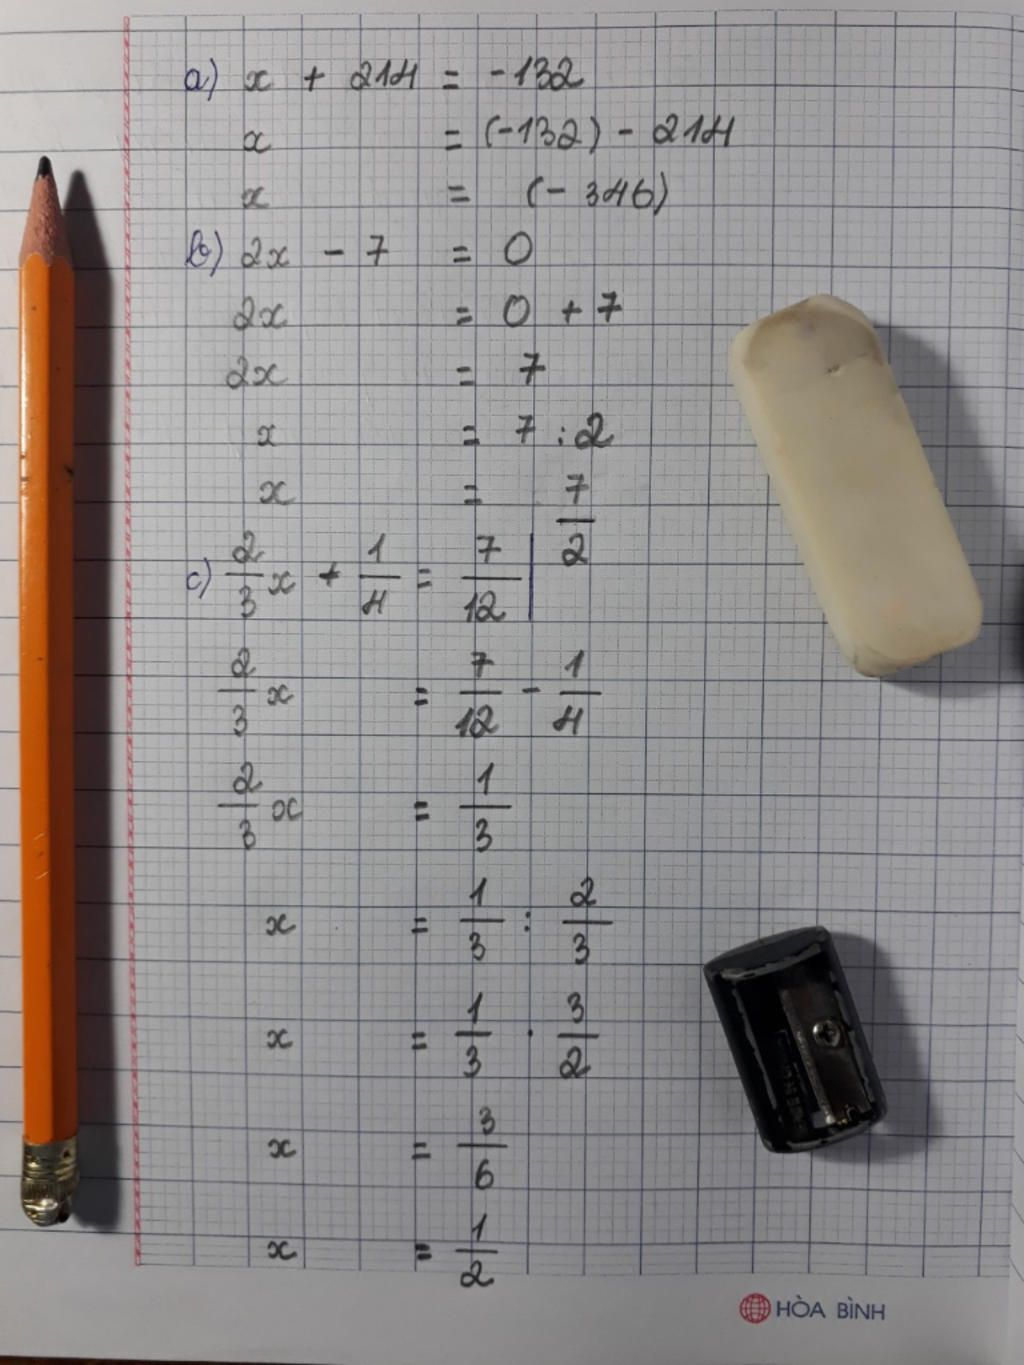 a) x + 214 = -132
x = (-132) - 214
x = (-346)
b) 2x - 7 = 0
2x = 0 + 7
2x = 7
x = 7 : 2
x = 7/2
c) 2/3 x + 1/4 = 7/12
2/3 x = 7/12 - 1/4
2/3 x = 1/3
x = 1/3 : 2/3
x = 1/3 . 3/2
x = 3/6
x = 1/2
HÒA BÌNH